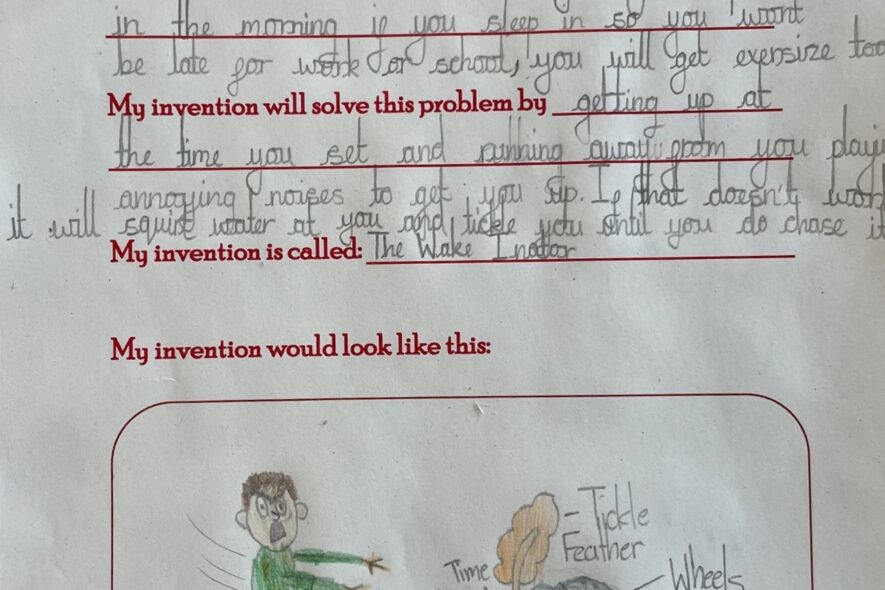 in the morning if you sleep in so you wont
be late for work or school, you will get exersize too
My invention will solve this problem by getting up at
the time you set and running away from you playi
annoying noises to get you up. If that doesn't work
it will squirt water at you and tickle you until you do chase it
My invention is called: The Wake Inator
My invention would look like this:
- Tickle
Feather
Time
Wheels